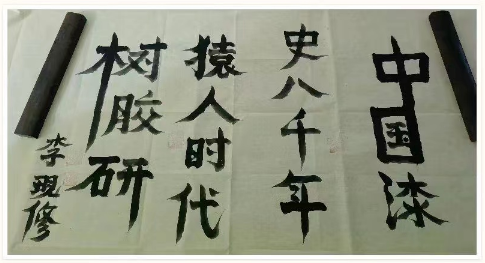 中国漆
史八千年
猿人时代
树胶研
李現修